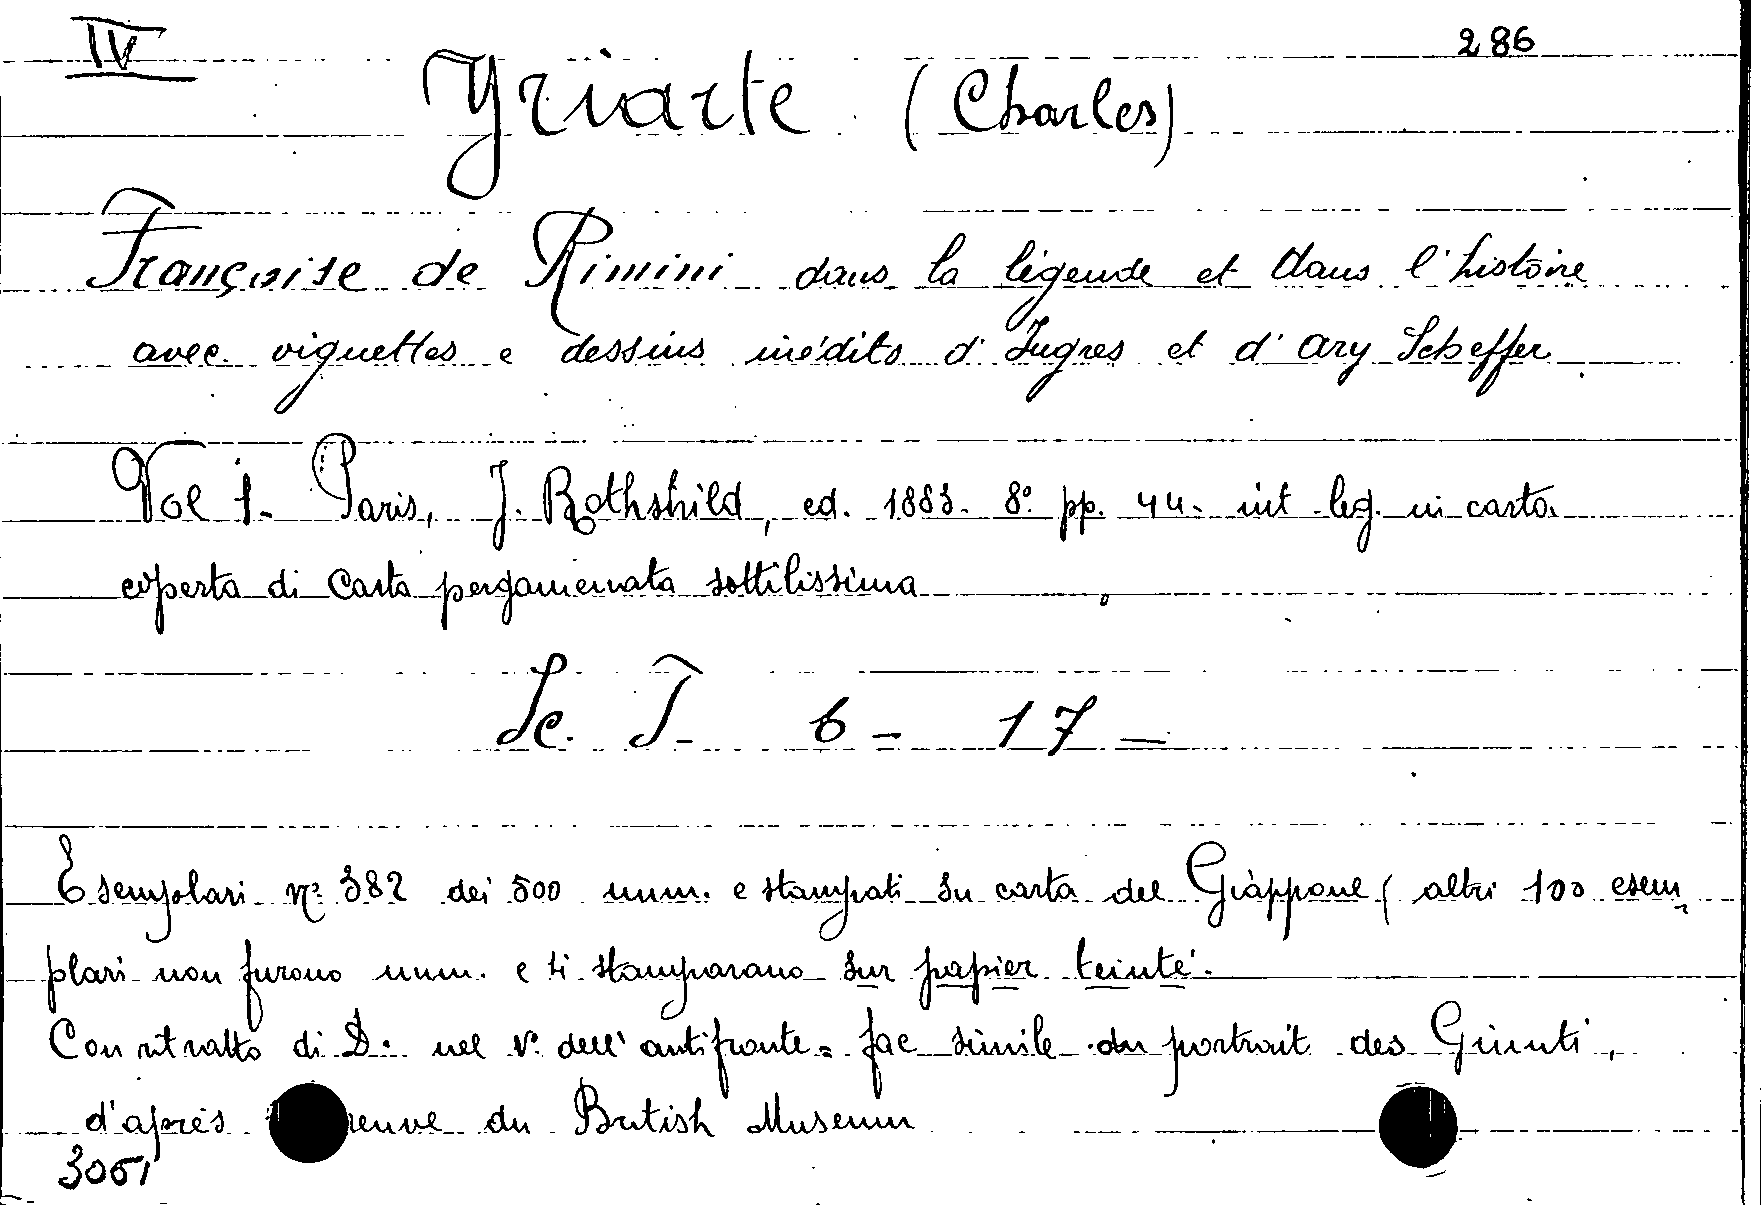 IV 286
Yriarte (Charles)
Françoise de Rimini dans la légende et dans l'histoire
avec vignettes e dessins inédits d'Ingres et d'Ary Scheffer
Vol 1. Paris, J. Rothshild, ed. 1883. 8° pp. 44. int leg. in carta
coperta di carta pergamenata sottilissima
Sc. T. 6 - 17 -
Esemplari n° 382 dei 500 num. e stampati su carta del Giappone ( altri 100 esem
plari non furono num. e si stamparano sur papier teinté.
Con ritratto di D. nel v° dell'antifronte = fac simile du portrait des Giunti,
d'après reuve du British Museum
3061